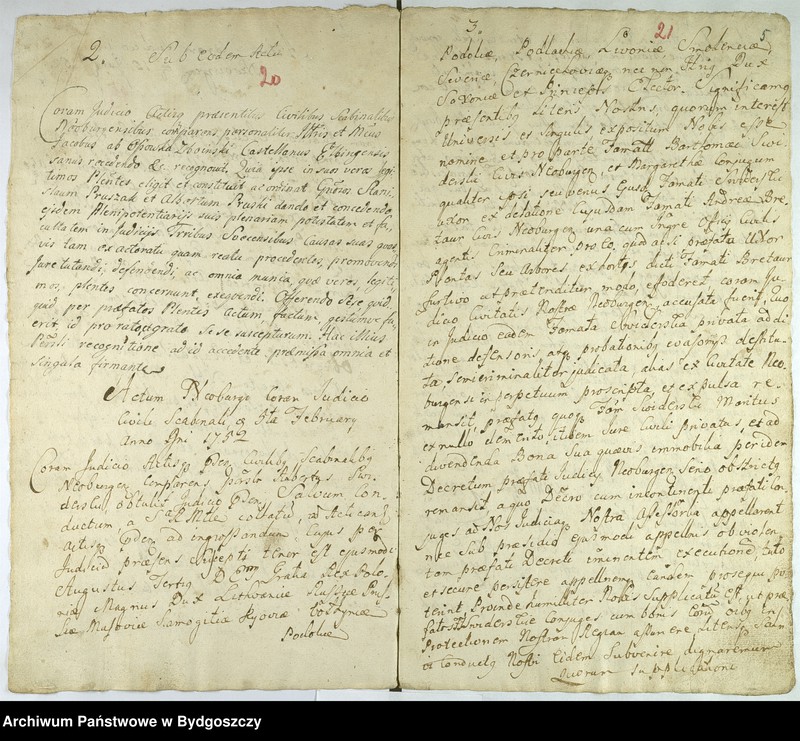 2. Sub eodem Actu
20
Coram Judicio Actisq præsentibus Civilibus Scabinalibus
Neoburgensibus comparens personaliter et Mcus
Jacobus ab Zboinski, Castellanus Elbingensis
sanus recedendo &c. recognovit, Quia ipse in suos veros legi-
timos Plentes eligit et constituit ac ordinat Gnosos Stani-
slaum Pruszak et Albertum Pruski dando et concedendo
eisdem Plenipotentiarijs suis plenariam potestatem et fa-
cultatem in Judicijs Suecensibus Causas suas quas-
vis tam ex actoratu quam reatu procedentes, promovendi
Jure tutandi, defendendi ac omnia munia, quæ veros, legiti-
mos, plentes concernunt, exequendi. Offerendo sese quid-
quid, per præfatos Plentes Actum factum, gestumve fu-
erit, id pro rato et grato se se suscepturum. Hac Mcius
recognitione ad id accedente præmissa omnia et
singula firmante
Actum Neoburgi Coram Judicio
Civili Scabinali, 5ta February
Anno Dni 1752
Coram Judicio Actisq Civilibq Scabinalibq
Neoburgen Comparens Albertus Swi-
derski, obtulit Judicio Salvum Con-
ductum, a
Actisq ad ingrossandum. Cujus per
Judiciu præsens suscepti tenor est ejusmodi
Augustus Tertiq D Gratia Rex Polo-
niæ Magnus Dux Lithvaniæ Russiæ Prus-
siæ Masoviæ Samogitiæ Kyoviæ Vołhyniæ
Podoliæ
3. 21 5
Podoliæ, Podlachiæ, Livoniæ Smolenciæ
Severiæ Czernichoviæq nec non Hæq Dux
Saxoniæ et Princeps Elector. Significamq
præsentibq literis Nostris, quorum interest
Universis et singulis expositum Nobis esse
nomine et pro parte Famati Barthomæi Swi-
derski Civis Neoburgen, et Margarethæ Conjugum
qualiter ipsi seu verius Famati Swiderski
Uxor ex delatione Cujusdam Famati Andreæ Bre-
taur Civis Neoburgen una cum Civilis
agents Criminaliter, pro eo, quod ac si præfata Uxor
Plantas Seu Arbores ex horto dicti Famati Bretaur
furtivo ut prætenditur modo, effoderet coram Ju-
dicio Civitatis Nostræ Neoburgen accusata fuerit, quo
in Judicio eadem Famata Swiderska privata addi-
tione defensoris atq probationibq evasorijs destitu-
ta, semicriminaliter judicata, alias ex Civitate Neo-
burgensi in perpetuum proscripta, et expulsa re-
mansit, præfatq quoq Fam Swiderski Maritus
ex nullo elemento, itidem Jure Civili privatus, et ad
divendenda Bona sua quævis immobilia per idem
Decretum præfate Judicij Neoburgen obstrictq
remansit, a quo Decreto cum incontinenti præfati Con-
juges ad Nos Judiciaq Nostra Assessoria appellarent
nec sub præsidio ejusmodi appellnis obvie
tam præfati Decreti imminentem executionem, tuto
et secure persistere appellnemq eandem prosequi po-
terint, Proinde humiliter Nobis Supplicatu est, ut præ-
fatos Swiderskie Conjuges cum bonis eorum oibq in
Protectionem Nostram Regiam assumere literisq Salvi
Conductq Nostri Eisdem Subvenire dignaremur
Quorum Supplicationi
Archiwum Państwowe w Bydgoszczy